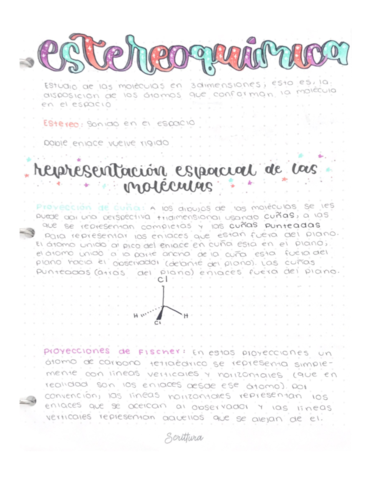 estereoquimica
Estudio de las moléculas en 3dimensiones, esto es: la
disposición de los átomos que conforman la molécula
en el espacio
Estereo: Sonido en el espacio
Doble enlace vuelve rígido
representación espacial de las
moléculas
Proyección de cuña: A los dibujos de las moléculas se les
puede dar una perspectiva tridimensional usando cuñas, a las
que se representan completas y las cuñas punteadas
para representar los enlaces que están fuera del plano.
El átomo unido al pico del enlace en cuña está en el plano,
el átomo unido a la parte ancha de la cuña está fuera del
plano hacia el observador (delante del plano). Las cuñas
punteadas (atrás del plano) enlaces fuera del plano.
Cl
H
H
Cl
Proyecciones de Fischer: En estas proyecciones un
átomo de carbono tetraédrico se representa simple-
mente con líneas verticales y horizontales (que en
realidad son los enlaces desde ese átomo). Por
convención, las líneas horizontales representan los
enlaces que se acercan al observador y las líneas
verticales representan aquellos que se alejan de el.
Scrittura